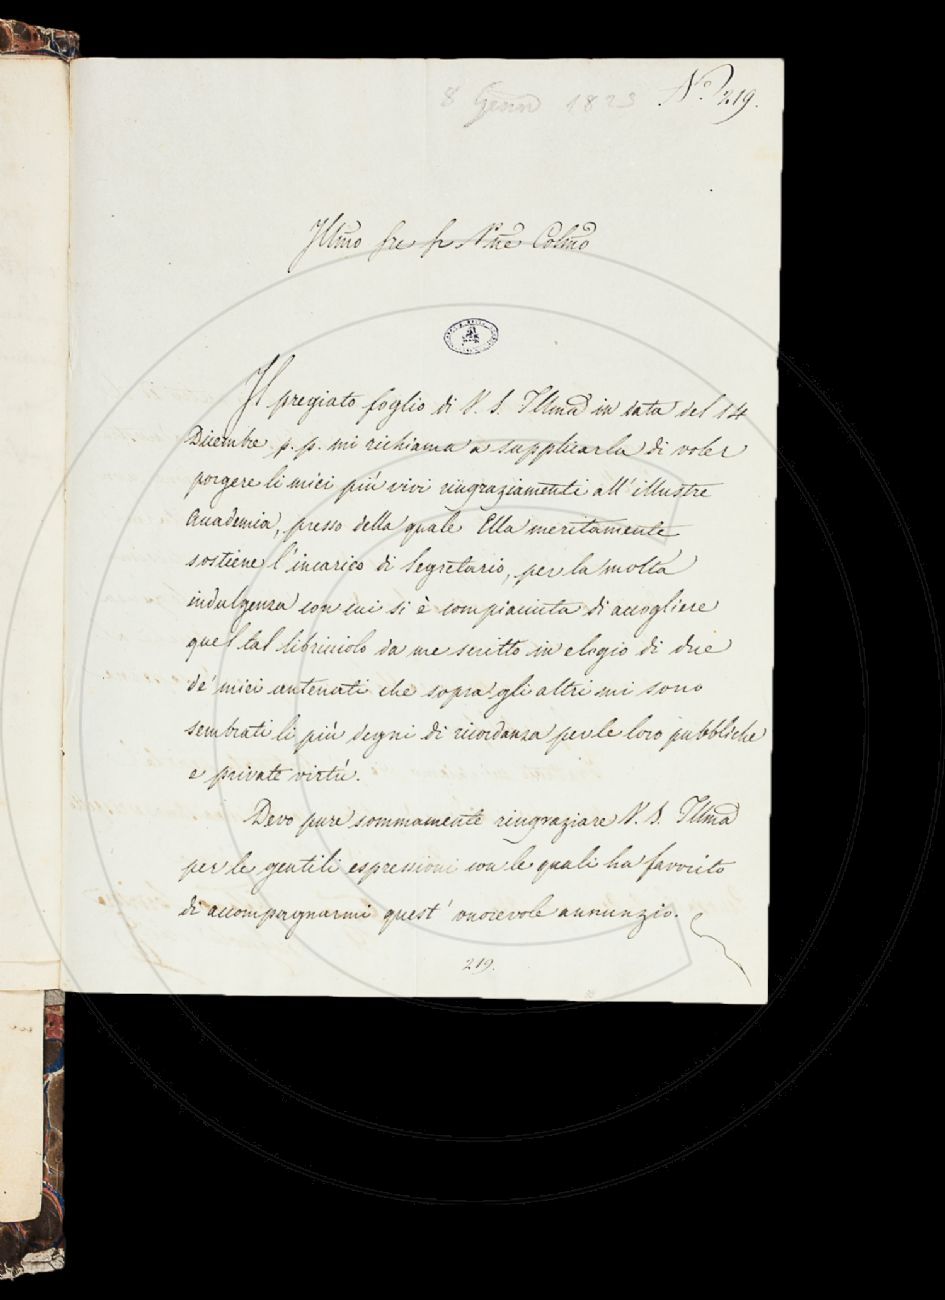 8 Genn 1823 N.° 219.
Illmo Sre Sr Pne Colmo
Il pregiato foglio di V. S. Illma in data del 14
Dicembre p. p. mi richiama a supplicarla di voler
porgere li miei più vivi ringraziamenti all' illustre
Accademia, presso della quale Ella meritamente
sostiene l'incarico di Segretario, per la molta
indulgenza con cui si è compiaciuta di accogliere
quel tal libricciolo da me scritto in elogio di due
de' miei antenati che sopra gli altri mi sono
sembrati li più degni di ricordanza per le loro pubbliche
e private virtù.
Devo pure sommamente ringraziare V. S. Illma
per le gentili espressioni con le quali ha favorito
di accompagnarmi quest' onorevole annunzio.
219.